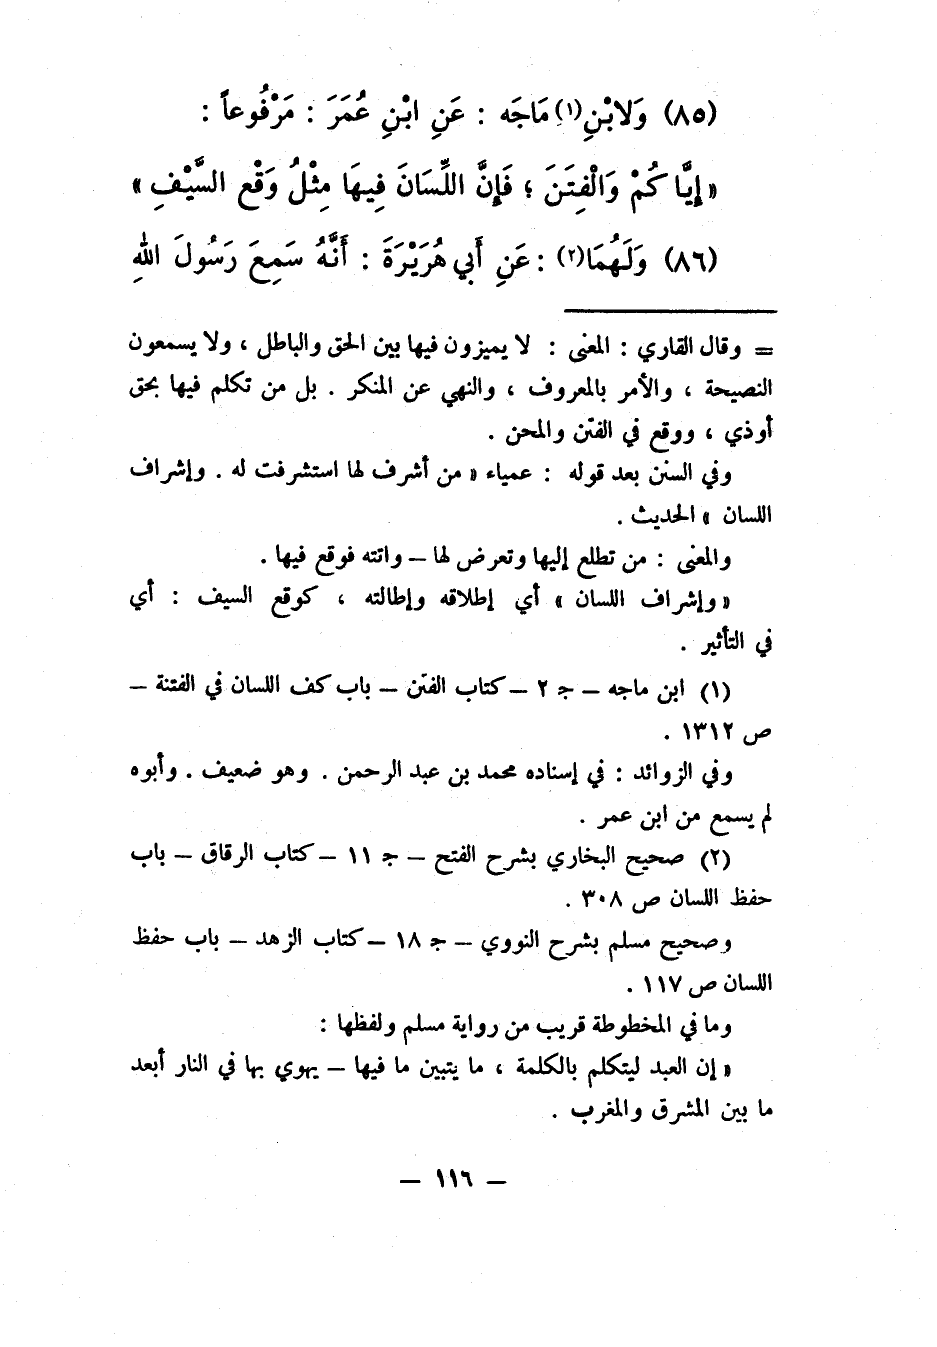 (٨٥) وَلابْنِ(١) مَاجَه : عَنِ ابْنِ عُمَرَ : مَرْفُوعاً :
« إِيَّاكُمْ وَالْفِتَنَ ؛ فَإِنَّ اللِّسَانَ فِيهَا مِثْلُ وَقْعِ السَّيْفِ »
(٨٦) وَلَهُمَا(٢) : عَنِ أَبي هُرَيْرَةَ : أَنَّهُ سَمِعَ رَسُولَ اللهِ
= وقال القاري : المعنى : لا يميزون فيها بين الحق والباطل ، ولا يسمعون
النصيحة ، والأمر بالمعروف ، والنهي عن المنكر . بل من تكلم فيها بحق
أوذي ، ووقع في الفتن والمحن .
وفي السنن بعد قوله : عمياء « من أشرف لها استشرفت له . وإشراف
اللسان » الحديث .
والمعنى : من تطلع إليها وتعرض لها – واتته فوقع فيها .
« وإشراف اللسان » أي إطلاقه وإطالته ، كوقع السيف : أي
في التأثير .
(١) ابن ماجه – جـ ٢ – كتاب الفتن – باب كف اللسان في الفتنة –
ص ١٣١٢ .
وفي الزوائد : في إسناده محمد بن عبد الرحمن . وهو ضعيف . وأبوه
لم يسمع من ابن عمر .
(٢) صحيح البخاري بشرح الفتح – جـ ١١ – كتاب الرقاق – باب
حفظ اللسان ص ٣٠٨ .
وصحيح مسلم بشرح النووي – جـ ١٨ – كتاب الزهد – باب حفظ
اللسان ص ١١٧ .
وما في المخطوطة قريب من رواية مسلم ولفظها :
« إن العبد ليتكلم بالكلمة ، ما يتبين ما فيها – يهوي بها في النار أبعد
ما بين المشرق والمغرب .
– ١١٦ –